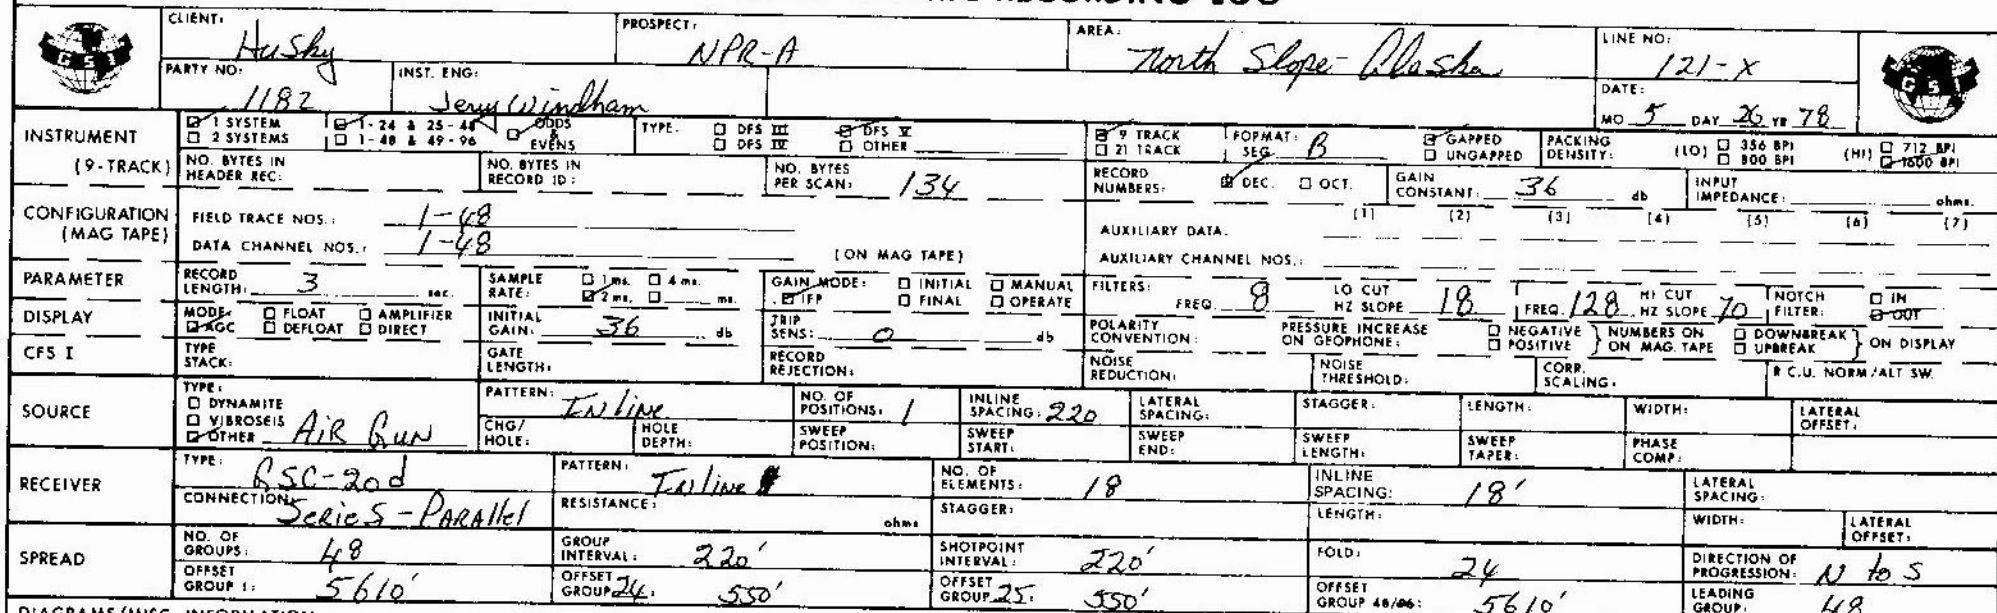 RECORDING LOG
CLIENT: Husky PROSPECT: NPR-A AREA: North Slope-Alaska LINE NO: 121-X
GSI GSI
PARTY NO: 1182 INST. ENG: Jerry Windham DATE: MO 5 DAY 26 YR 78
INSTRUMENT (9-TRACK)
☑ 1 SYSTEM ☑ 1-24 & 25-48 ☐ ODDS & EVENS TYPE: ☐ DFS III ☑ DFS V ☑ 9 TRACK FORMAT: SEG B ☑ GAPPED PACKING DENSITY: (LO) ☐ 356 BPI (HI) ☐ 712 BPI
☐ 2 SYSTEMS ☐ 1-48 & 49-96 ☐ DFS IV ☐ OTHER ☐ 21 TRACK ☐ UNGAPPED ☐ 800 BPI ☑ 1600 BPI
NO. BYTES IN HEADER REC: NO. BYTES IN RECORD ID: NO. BYTES PER SCAN: 134 RECORD NUMBERS: ☑ DEC. ☐ OCT. GAIN CONSTANT: 36 db INPUT IMPEDANCE: ohms.
CONFIGURATION (MAG TAPE)
FIELD TRACE NOS.: 1-48 AUXILIARY DATA. (1) (2) (3) (4) (5) (6) (7)
DATA CHANNEL NOS.: 1-48 (ON MAG TAPE) AUXILIARY CHANNEL NOS.:
PARAMETER
RECORD LENGTH: 3 sec. SAMPLE RATE: ☐ 1 ms. ☐ 4 ms. ☑ 2 ms. ☐ ms. GAIN MODE: ☐ INITIAL ☐ MANUAL ☑ IFP ☐ FINAL ☐ OPERATE FILTERS: FREQ. 8 LO CUT HZ SLOPE 18 FREQ. 128 HI CUT HZ SLOPE 70 NOTCH FILTER: ☐ IN ☑ OUT
DISPLAY
MODE: ☐ FLOAT ☐ AMPLIFIER ☑ AGC ☐ DEFLOAT ☐ DIRECT INITIAL GAIN: 36 db TRIP SENS: 0 db POLARITY CONVENTION: PRESSURE INCREASE ON GEOPHONE: ☐ NEGATIVE ☐ POSITIVE } NUMBERS ON MAG. TAPE ☐ DOWNBREAK ☐ UPBREAK } ON DISPLAY
CFS I
TYPE STACK: GATE LENGTH: RECORD REJECTION: NOISE REDUCTION: NOISE THRESHOLD: CORR. SCALING: R.C.U. NORM/ALT SW.
SOURCE
TYPE: ☐ DYNAMITE ☐ VIBROSEIS ☑ OTHER AIR GUN PATTERN: Inline NO. OF POSITIONS: 1 INLINE SPACING: 220 LATERAL SPACING: STAGGER: LENGTH: WIDTH: LATERAL OFFSET:
CHG/HOLE: HOLE DEPTH: SWEEP POSITION: SWEEP START: SWEEP END: SWEEP LENGTH: SWEEP TAPER: PHASE COMP:
RECEIVER
TYPE: GSC-20d PATTERN: Inline NO. OF ELEMENTS: 18 INLINE SPACING: 18' LATERAL SPACING:
CONNECTION: Series-Parallel RESISTANCE: ohms STAGGER: LENGTH: WIDTH: LATERAL OFFSET:
SPREAD
NO. OF GROUPS: 48 GROUP INTERVAL: 220' SHOTPOINT INTERVAL: 220' FOLD: 24 DIRECTION OF PROGRESSION: N to S
OFFSET GROUP 1: 5610' OFFSET GROUP 24: 550' OFFSET GROUP 25: 550' OFFSET GROUP 48/96: 5610' LEADING GROUP: 48
DIAGRAMS/MISC. INFORMATION